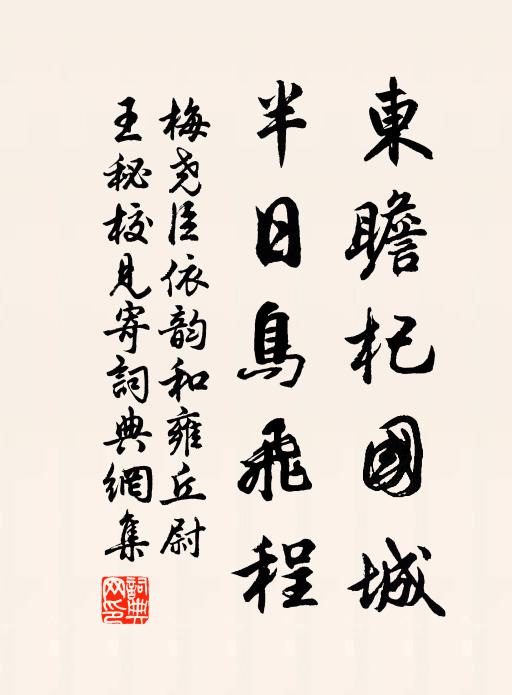 東瞻杞國城
半日鳥飛程
梅堯臣依韵和雍丘尉
王秘校見寄詞典網集
詞典
网印